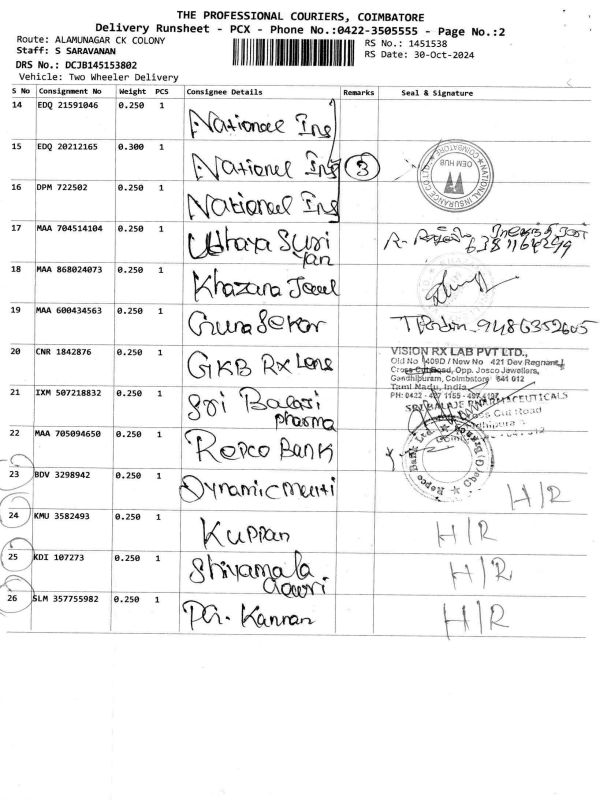 THE PROFESSIONAL COURIERS, COIMBATORE
Delivery Runsheet - PCX - Phone No.:0422-3505555 - Page No.:2
Route: ALAMUNAGAR CK COLONY
RS No.: 1451538
Staff: S SARAVANAN
RS Date: 30-Oct-2024
DRS No.: DCJB145153802
Vehicle: Two Wheeler Delivery
S No Consignment No Weight PCS Consignee Details Remarks Seal & Signature
14 EDQ 21591046 0.250 1 National Ins
15 EDQ 20212165 0.300 1 National Ins 3
NATIONAL INSURANCE CO
OEM HUB
COIMBATORE
16 DPM 722502 0.250 1 National Ins
17 MAA 704514104 0.250 1 Uthaya Suri
yan
18 MAA 868024073 0.250 1 Khazana Jewel
19 MAA 600434563 0.250 1 Guna Sekar 9486352605
20 CNR 1842876 0.250 1 GKB RX Lens
VISION RX LAB PVT LTD.,
Old No 409D / New No 421 Dev Regnant,
Cross Cut Road, Opp. Josco Jewellers,
Gandhipuram, Coimbatore 641 012
Tamil Nadu, India
PH: 0422 - 497 1155 - 497 4197
21 IXM 507218832 0.250 1 Sri Balaji
pharma
SRI BALAJI PHARMACEUTICALS
Cross Cut Road
22 MAA 705094650 0.250 1 Repco Bank
Repco Bank Ltd
23 BDV 3298942 0.250 1 Dynamic H/R
24 KMU 3582493 0.250 1 Kuppan H/R
25 KDI 107273 0.250 1 Shiyamala H/R
Gowri
26 SLM 357755982 0.250 1 PG. Kannan H/R